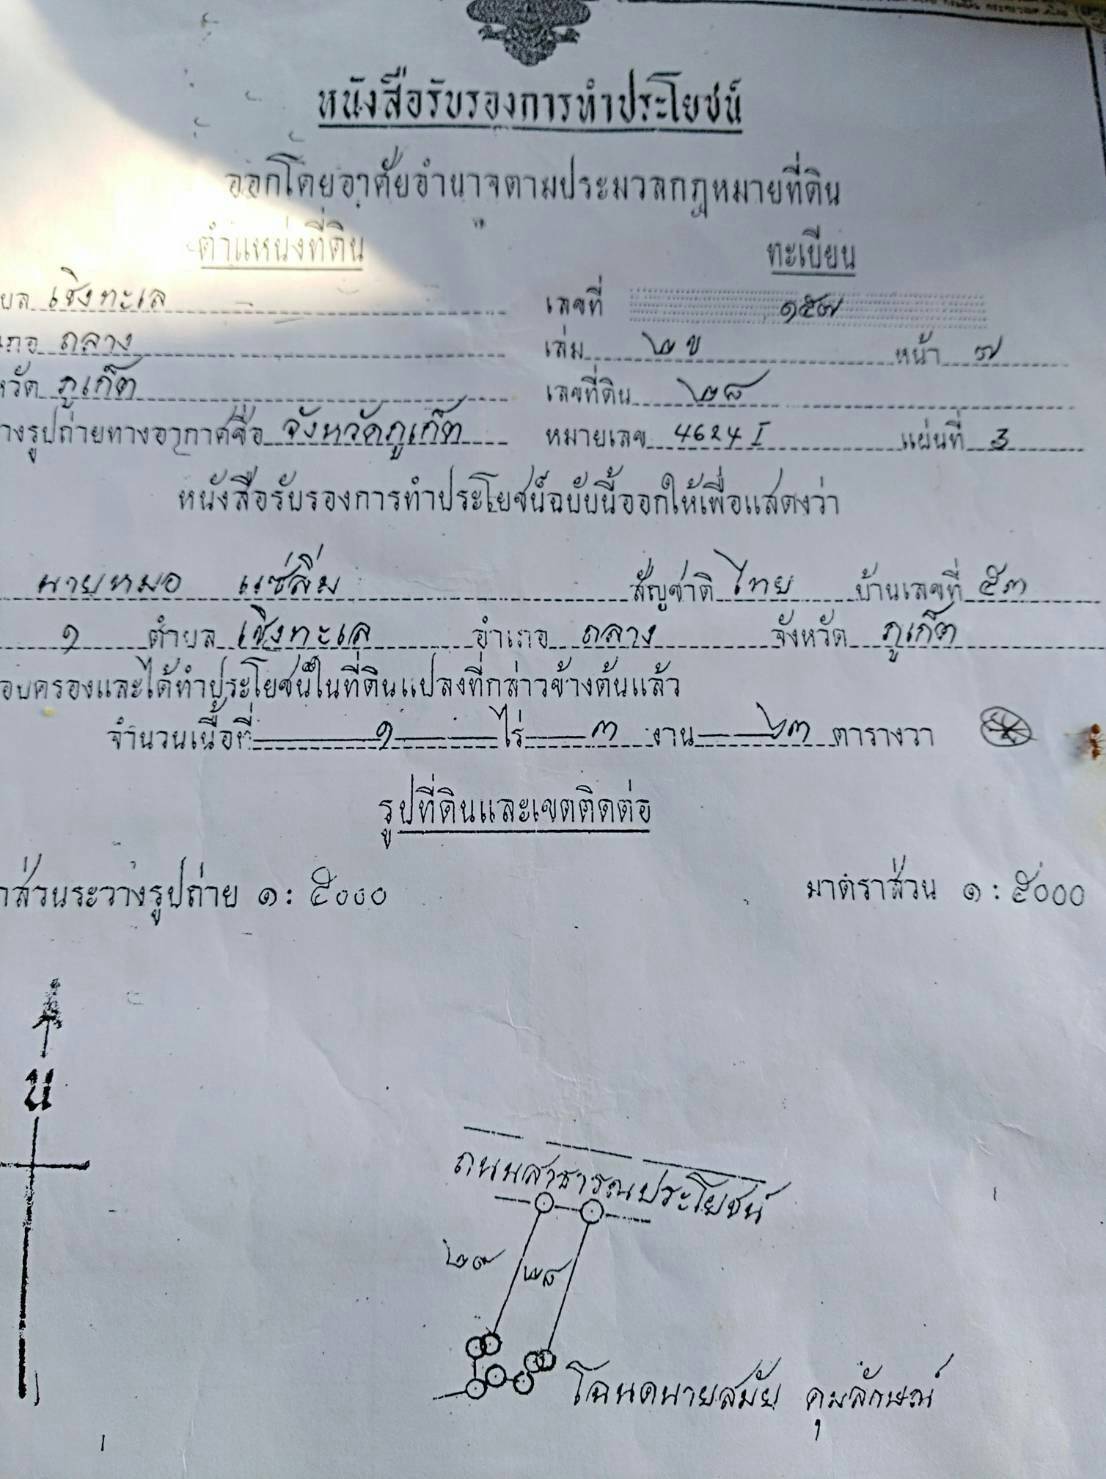 หนังสือรับรองการทำประโยชน์
ออกโดยอาศัยอำนาจตามประมวลกฎหมายที่ดิน
ตำแหน่งที่ดิน ทะเบียน
บล เชิงทะเล เลขที่ ๑๕๗
เภอ ถลาง เล่ม ๒ข หน้า ๗
หวัด ภูเก็ต เลขที่ดิน ๒๘
างรูปถ่ายทางอากาศชื่อ จังหวัดภูเก็ต หมายเลข 4624 I แผ่นที่ 3
หนังสือรับรองการทำประโยชน์ฉบับนี้ออกให้เพื่อแสดงว่า
นายหมอ แซ่ลิ่ม สัญชาติ ไทย บ้านเลขที่ ๕๓
๑ ตำบล เชิงทะเล อำเภอ ถลาง จังหวัด ภูเก็ต
อบครองและได้ทำประโยชน์ในที่ดินแปลงที่กล่าวข้างต้นแล้ว
จำนวนเนื้อที่ ๑ ไร่ ๓ งาน ๖๓ ตารางวา
รูปที่ดินและเขตติดต่อ
าส่วนระวางรูปถ่าย ๑ : ๕๐๐๐ มาตราส่วน ๑ : ๕๐๐๐
น
ถนนสาธารณประโยชน์
๒๙ ๒๘
โฉนดนายสมัย คุมลักษณ์